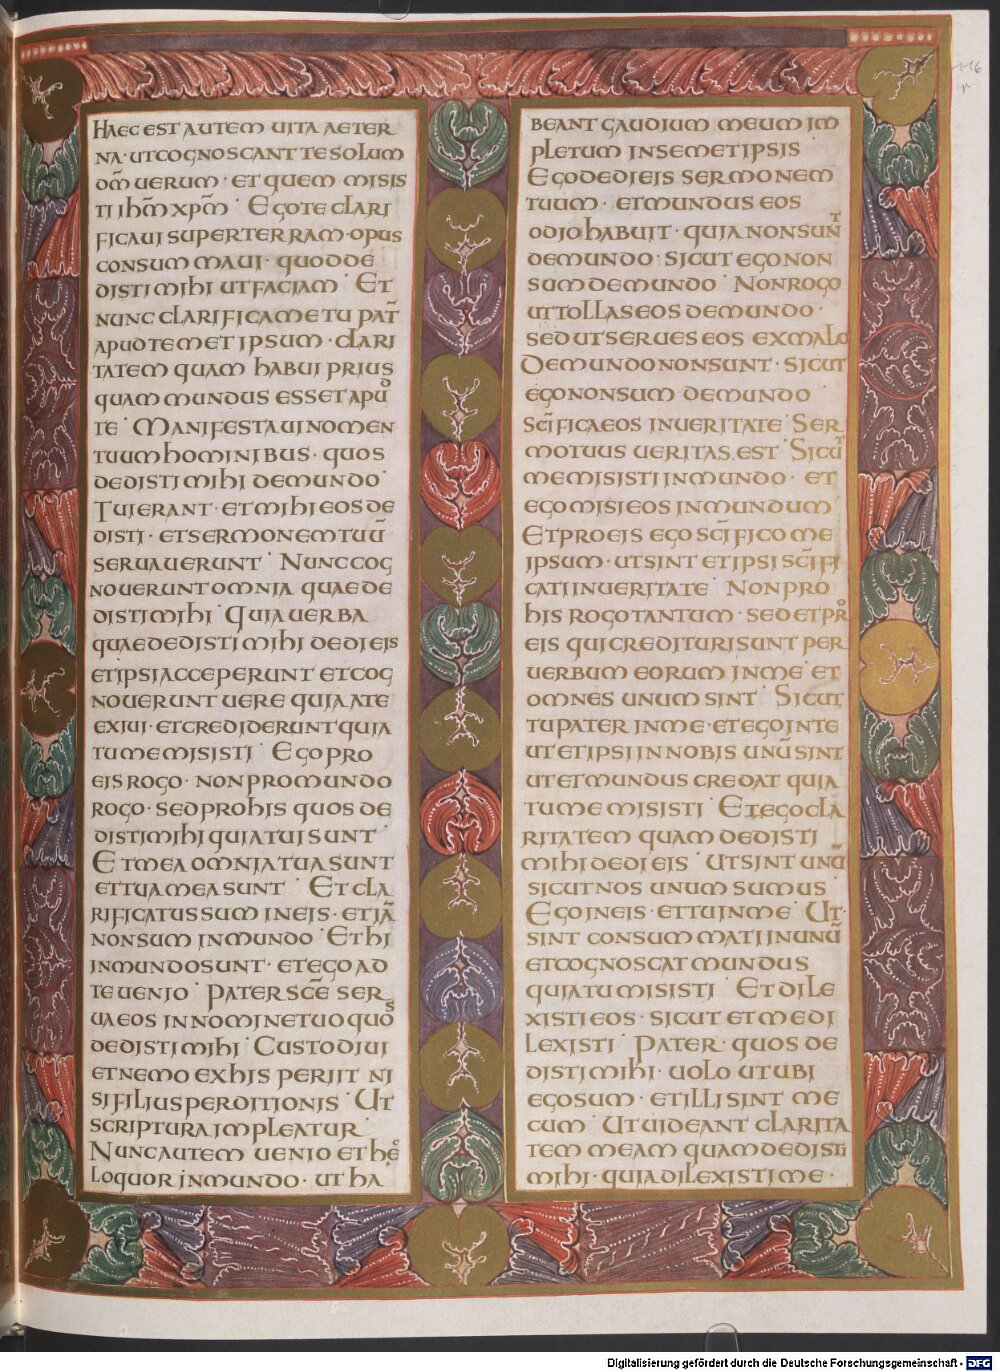 HAEC EST AUTEM UITA AETER
NA · UT COGNOSCANT TE SOLUM
DM̄ UERUM · ET QUEM MISIS
TI IHM̄ XPM̄ · EGO TE CLARI
FICAUI SUPER TERRAM · OPUS
CONSUMMAUI · QUOD DE
DISTI MIHI UT FACIAM · ET
NUNC CLARIFICA ME TU PAT̄
APUD TEMETIPSUM · CLARI
TATEM QUAM HABUI PRIUS
QUAM MUNDUS ESSET APUD
TE · MANIFESTAUI NOMEN
TUUM HOMINIBUS · QUOS
DEDISTI MIHI DE MUNDO ·
TUI ERANT · ET MIHI EOS DE
DISTI · ET SERMONEM TUŪ
SERUAUERUNT · NUNC COG
NOUERUNT OMNIA QUAE DE
DISTI MIHI · QUIA UERBA
QUAE DEDISTI MIHI DEDI EIS
ET IPSI ACCEPERUNT ET COG
NOUERUNT UERE QUIA A TE
EXIUI · ET CREDIDERUNT QUIA
TU ME MISISTI · EGO PRO
EIS ROGO · NON PRO MUNDO
ROGO · SED PRO HIS QUOS DE
DISTI MIHI QUIA TUI SUNT ·
ET MEA OMNIA TUA SUNT
ET TUA MEA SUNT · ET CLA
RIFICATUS SUM IN EIS · ET IĀ
NON SUM IN MUNDO · ET HI
IN MUNDO SUNT · ET EGO AD
TE UENIO · PATER SCE̅ SER
UA EOS IN NOMINE TUO QUOS
DEDISTI MIHI · CUSTODIUI
ET NEMO EX HIS PERIIT NI
SI FILIUS PERDITIONIS · UT
SCRIPTURA IMPLEATUR ·
NUNC AUTEM UENIO ET HEC
LOQUOR IN MUNDO · UT HA
BEANT GAUDIUM MEUM IM
PLETUM IN SEMETIPSIS
EGO DEDI EIS SERMONEM
TUUM · ET MUNDUS EOS
ODIO HABUIT · QUIA NON SUNT
DE MUNDO · SICUT EGO NON
SUM DE MUNDO · NON ROGO
UT TOLLAS EOS DE MUNDO ·
SED UT SERUES EOS EX MALO
DE MUNDO NON SUNT · SICUT
EGO NON SUM DE MUNDO
SCĪFICA EOS IN UERITATE · SER
MO TUUS UERITAS EST · SICUT
ME MISISTI IN MUNDO · ET
EGO MISI EOS IN MUNDUM
ET PRO EIS EGO SCĪFICO ME
IPSUM · UT SINT ET IPSI SCĪFI
CATI IN UERITATE · NON PRO
HIS ROGO TANTUM · SED ET PRO
EIS QUI CREDITURI SUNT PER
UERBUM EORUM IN ME · ET
OMNES UNUM SINT · SICUT
TU PATER IN ME · ET EGO IN TE
UT ET IPSI IN NOBIS UNŪ SINT
UT ET MUNDUS CREDAT QUIA
TU ME MISISTI · ET EGO CLA
RITATEM QUAM DEDISTI
MIHI DEDI EIS · UT SINT UNŪ
SICUT NOS UNUM SUMUS ·
EGO IN EIS · ET TU IN ME · UT ·
SINT CONSUMMATI IN UNŪ
ET COGNOSCAT MUNDUS
QUIA TU MISISTI · ET DILE
XISTI EOS · SICUT ET ME DI
LEXISTI · PATER · QUOS DE
DISTI MIHI · UOLO UT UBI
EGO SUM · ET ILLI SINT ME
CUM · UT UIDEANT CLARITA
TEM MEAM QUAM DEDISTI
MIHI · QUIA DILEXISTI ME ·
Digitalisierung gefördert durch die Deutsche Forschungsgemeinschaft - DFG